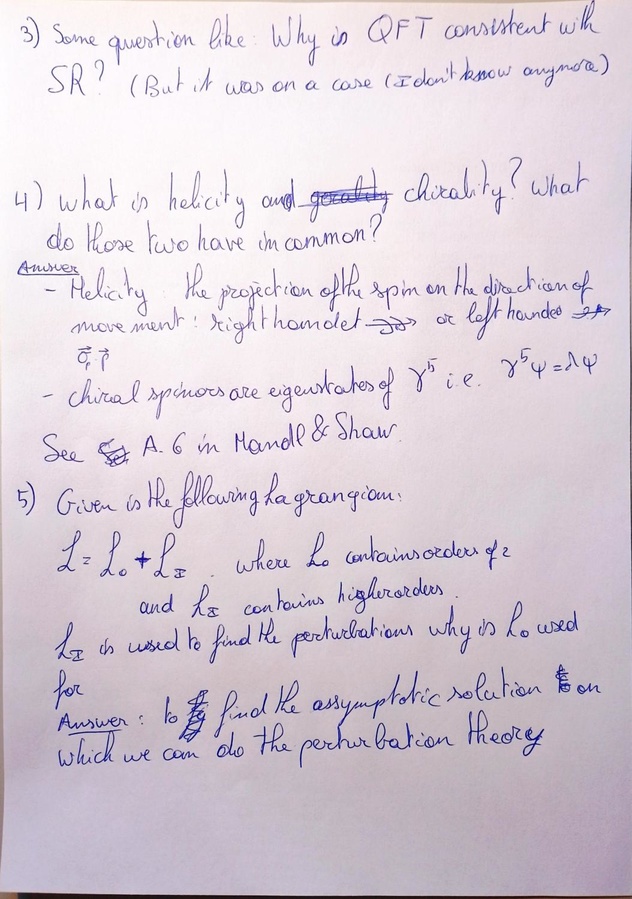 3) Some question like: Why is QFT consistent with
SR? (But it was on a case (I don't know anymore)
4) what is helicity and chirality? What
do those two have in common?
Answer
- Helicity: the projection of the spin on the direction of
movement: right handet or left handed
σ⃗, p⃗
- chiral spinors are eigenstates of γ⁵ i.e. γ⁵ψ=λψ
See A.6 in Mandl & Shaw.
5) Given is the following Lagrangian:
L = L₀ + L_I. where L₀ contains orders of 2
and L_I contains higher orders.
L_I is used to find the perturbations why is L₀ used
for
Answer: to find the assymptotic solution on
which we can do the perturbation theory